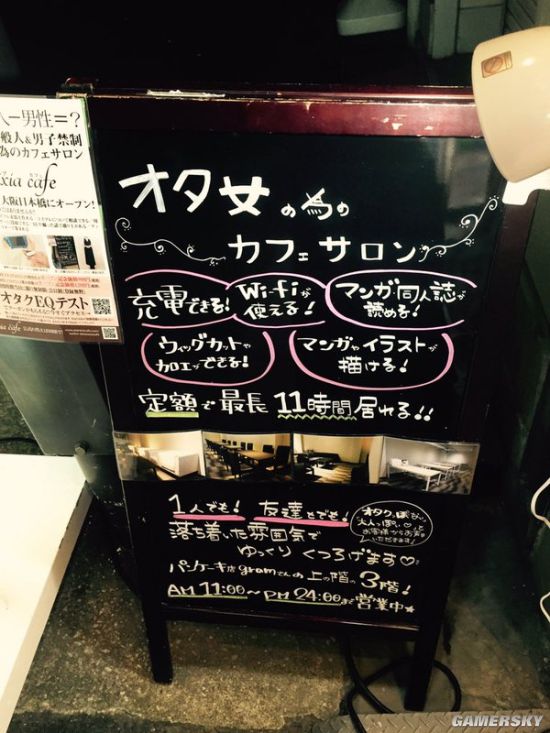 一男性=?
般人&男子禁制
為のカフェサロン
xia cafe
大阪日本橋にオープン!
オタクEQテスト
オタ女の為の
カフェサロン
充電できる!
Wi-fiが
使える!
マンガ、同人誌が
読める!
ウィッグカットや
加工ができる!
マンガやイラストが
描ける!
定額で最長 11時間居れる!!
1人でも! 友達とでも!
落ち着いた雰囲気で
ゆっくり くつろげます♡
オタクっぽくない
大人っぽい♡と
お客様からお声
いただきます!
パンケーキ店gramさんの上の階の3階!
AM 11:00〜PM 24:00まで営業中☆
GAMERSKY